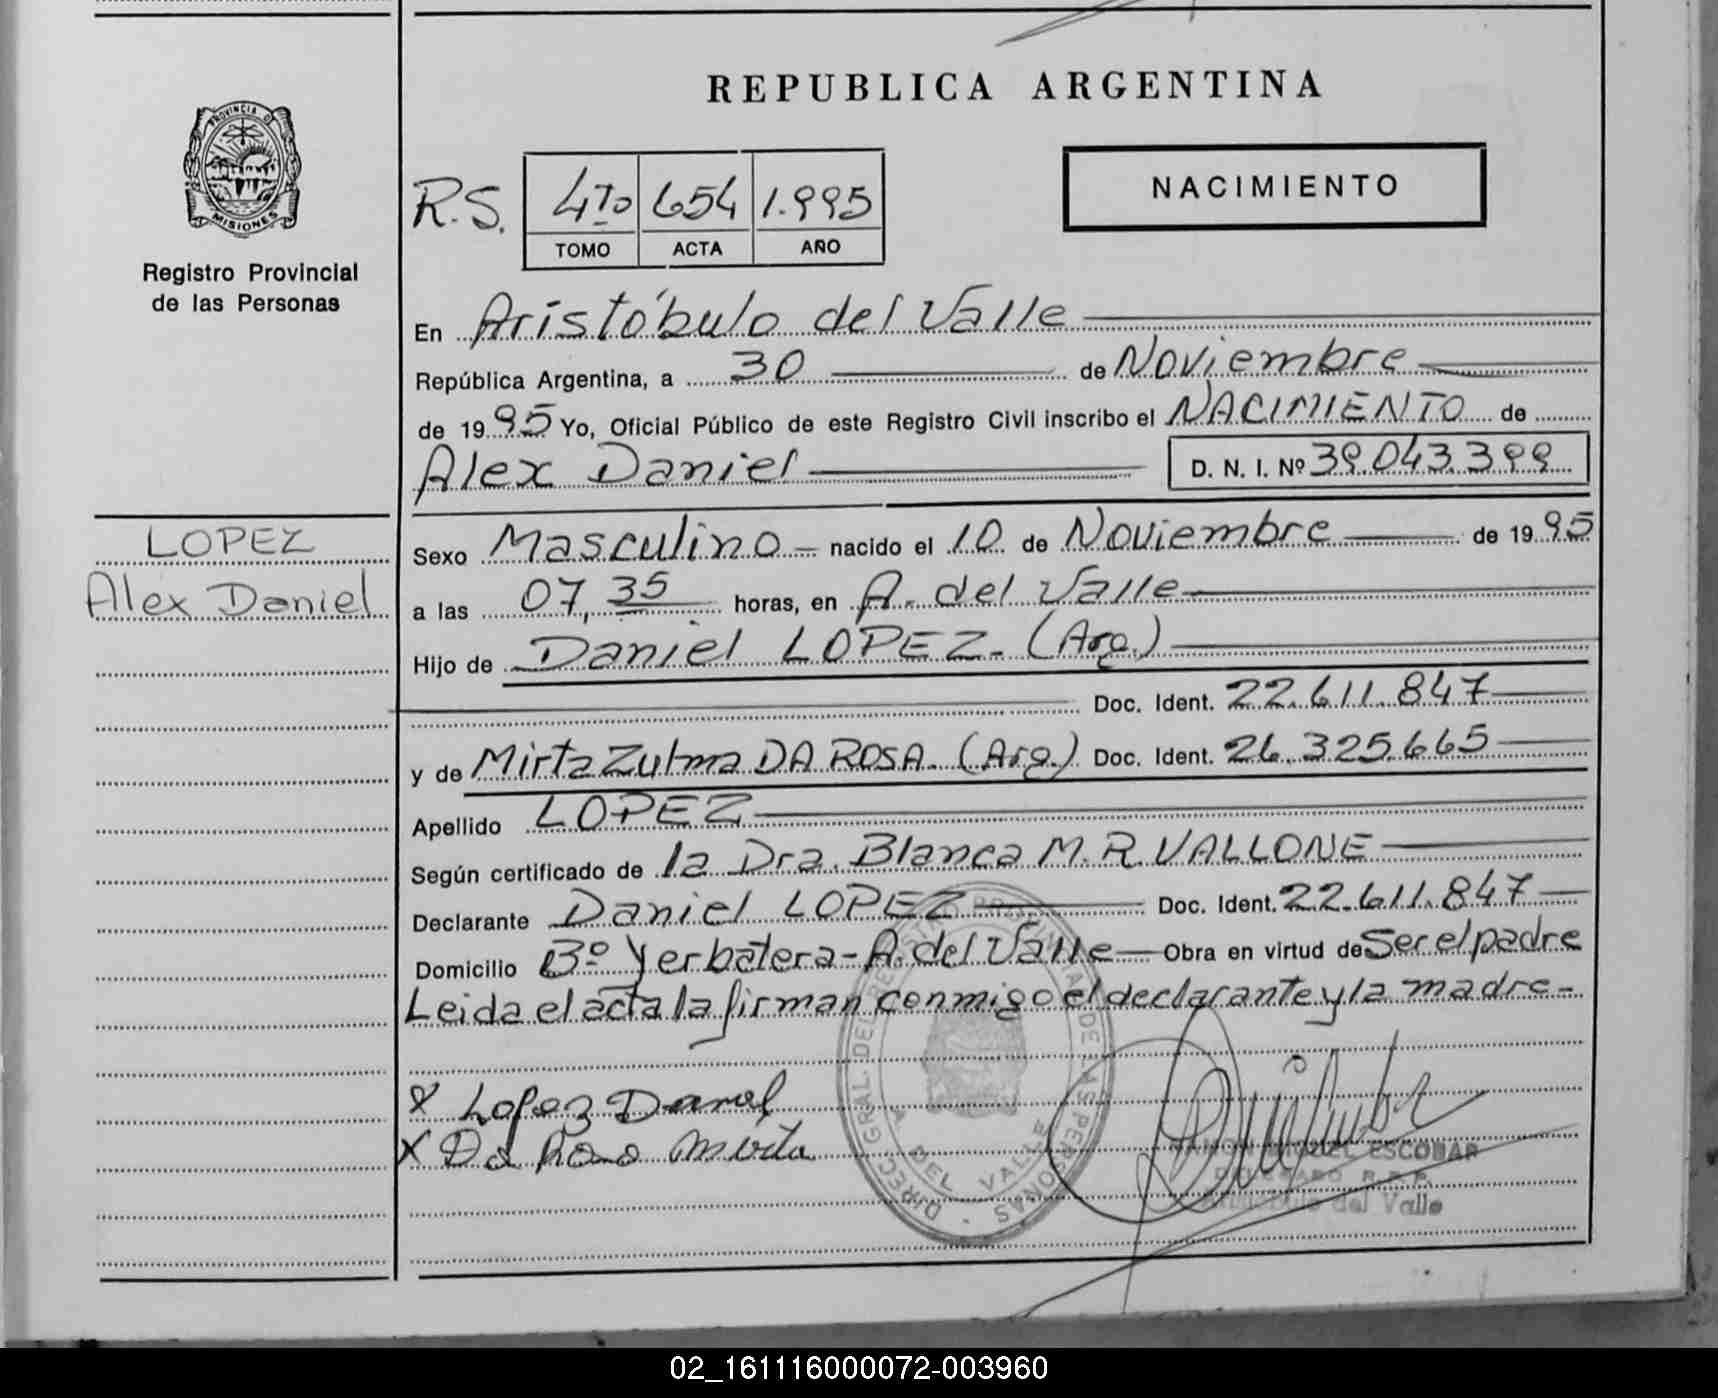 REPUBLICA ARGENTINA
PROVINCIA DE
MISIONES
Registro Provincial
de las Personas
R.S. 4To 654 1.995
TOMO ACTA AÑO
NACIMIENTO
En Aristóbulo del Valle
República Argentina, a 30 de Noviembre
de 1995 Yo, Oficial Público de este Registro Civil inscribo el NACIMIENTO de
Alex Daniel D. N. I. Nº 39.043.399
LOPEZ
Alex Daniel
Sexo Masculino nacido el 10 de Noviembre de 1995
a las 07,35 horas, en A. del Valle
Hijo de Daniel LOPEZ. (Arg.)
Doc. Ident. 22.611.847
y de Mirta Zulma DA ROSA. (Arg.) Doc. Ident. 26.325.665
Apellido LOPEZ
Según certificado de la Dra. Blanca M. R. VALLONE
Declarante Daniel LOPEZ Doc. Ident. 22.611.847
Domicilio Bº Yerbatera - A. del Valle Obra en virtud de Ser el padre
Leida el acta la firman conmigo el declarante y la madre-
X Lopez Danel
X Da Rosa Mirta
DIREC. GRAL. DEL REGISTRO PROVINCIAL DE LAS PERSONAS
A DEL VALLE
RAMON MIGUEL ESCOBAR
DELEGADO R.P.P.
Aristóbulo del Valle
02_161116000072-003960